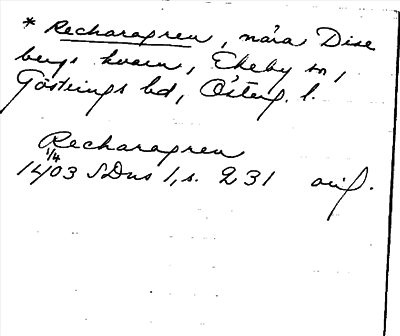 * Recharagren, nära Dise
bergs kvarn, Ekeby sn,
Göstrings hd, Österg. l.
Recharagren
1/4
1403 SDns 1, s. 231 orig.